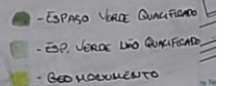 - ESPAÇO VERDE QUALIFICADO
- ESP. VERDE NÃO QUALIFICADO
- GEOMONUMENTO